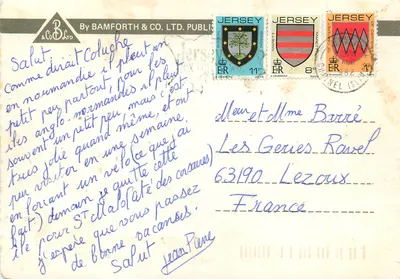 By BAMFORTH & CO. LTD. PUBLIS
JERSEY
JERSEY
JERSEY
Salut,
comme dirait Coluche
en normandie il pleut un
petit peu partout, pour les
îles anglo-normandes il pleut
souvent un petit peu, mais c'est
très joli quand même, et on
peu visiter en une semaine,
en forçant un vélo (ce que j'ai
fait) demain je quitte cette
île pour St Malo (cité des corsaires)
j'espère que vous passez
de bonne vacances.
Salut
Jean Pierre
Mr et Mme Barré
Les Geries Ravel
63190 Lezoux
France